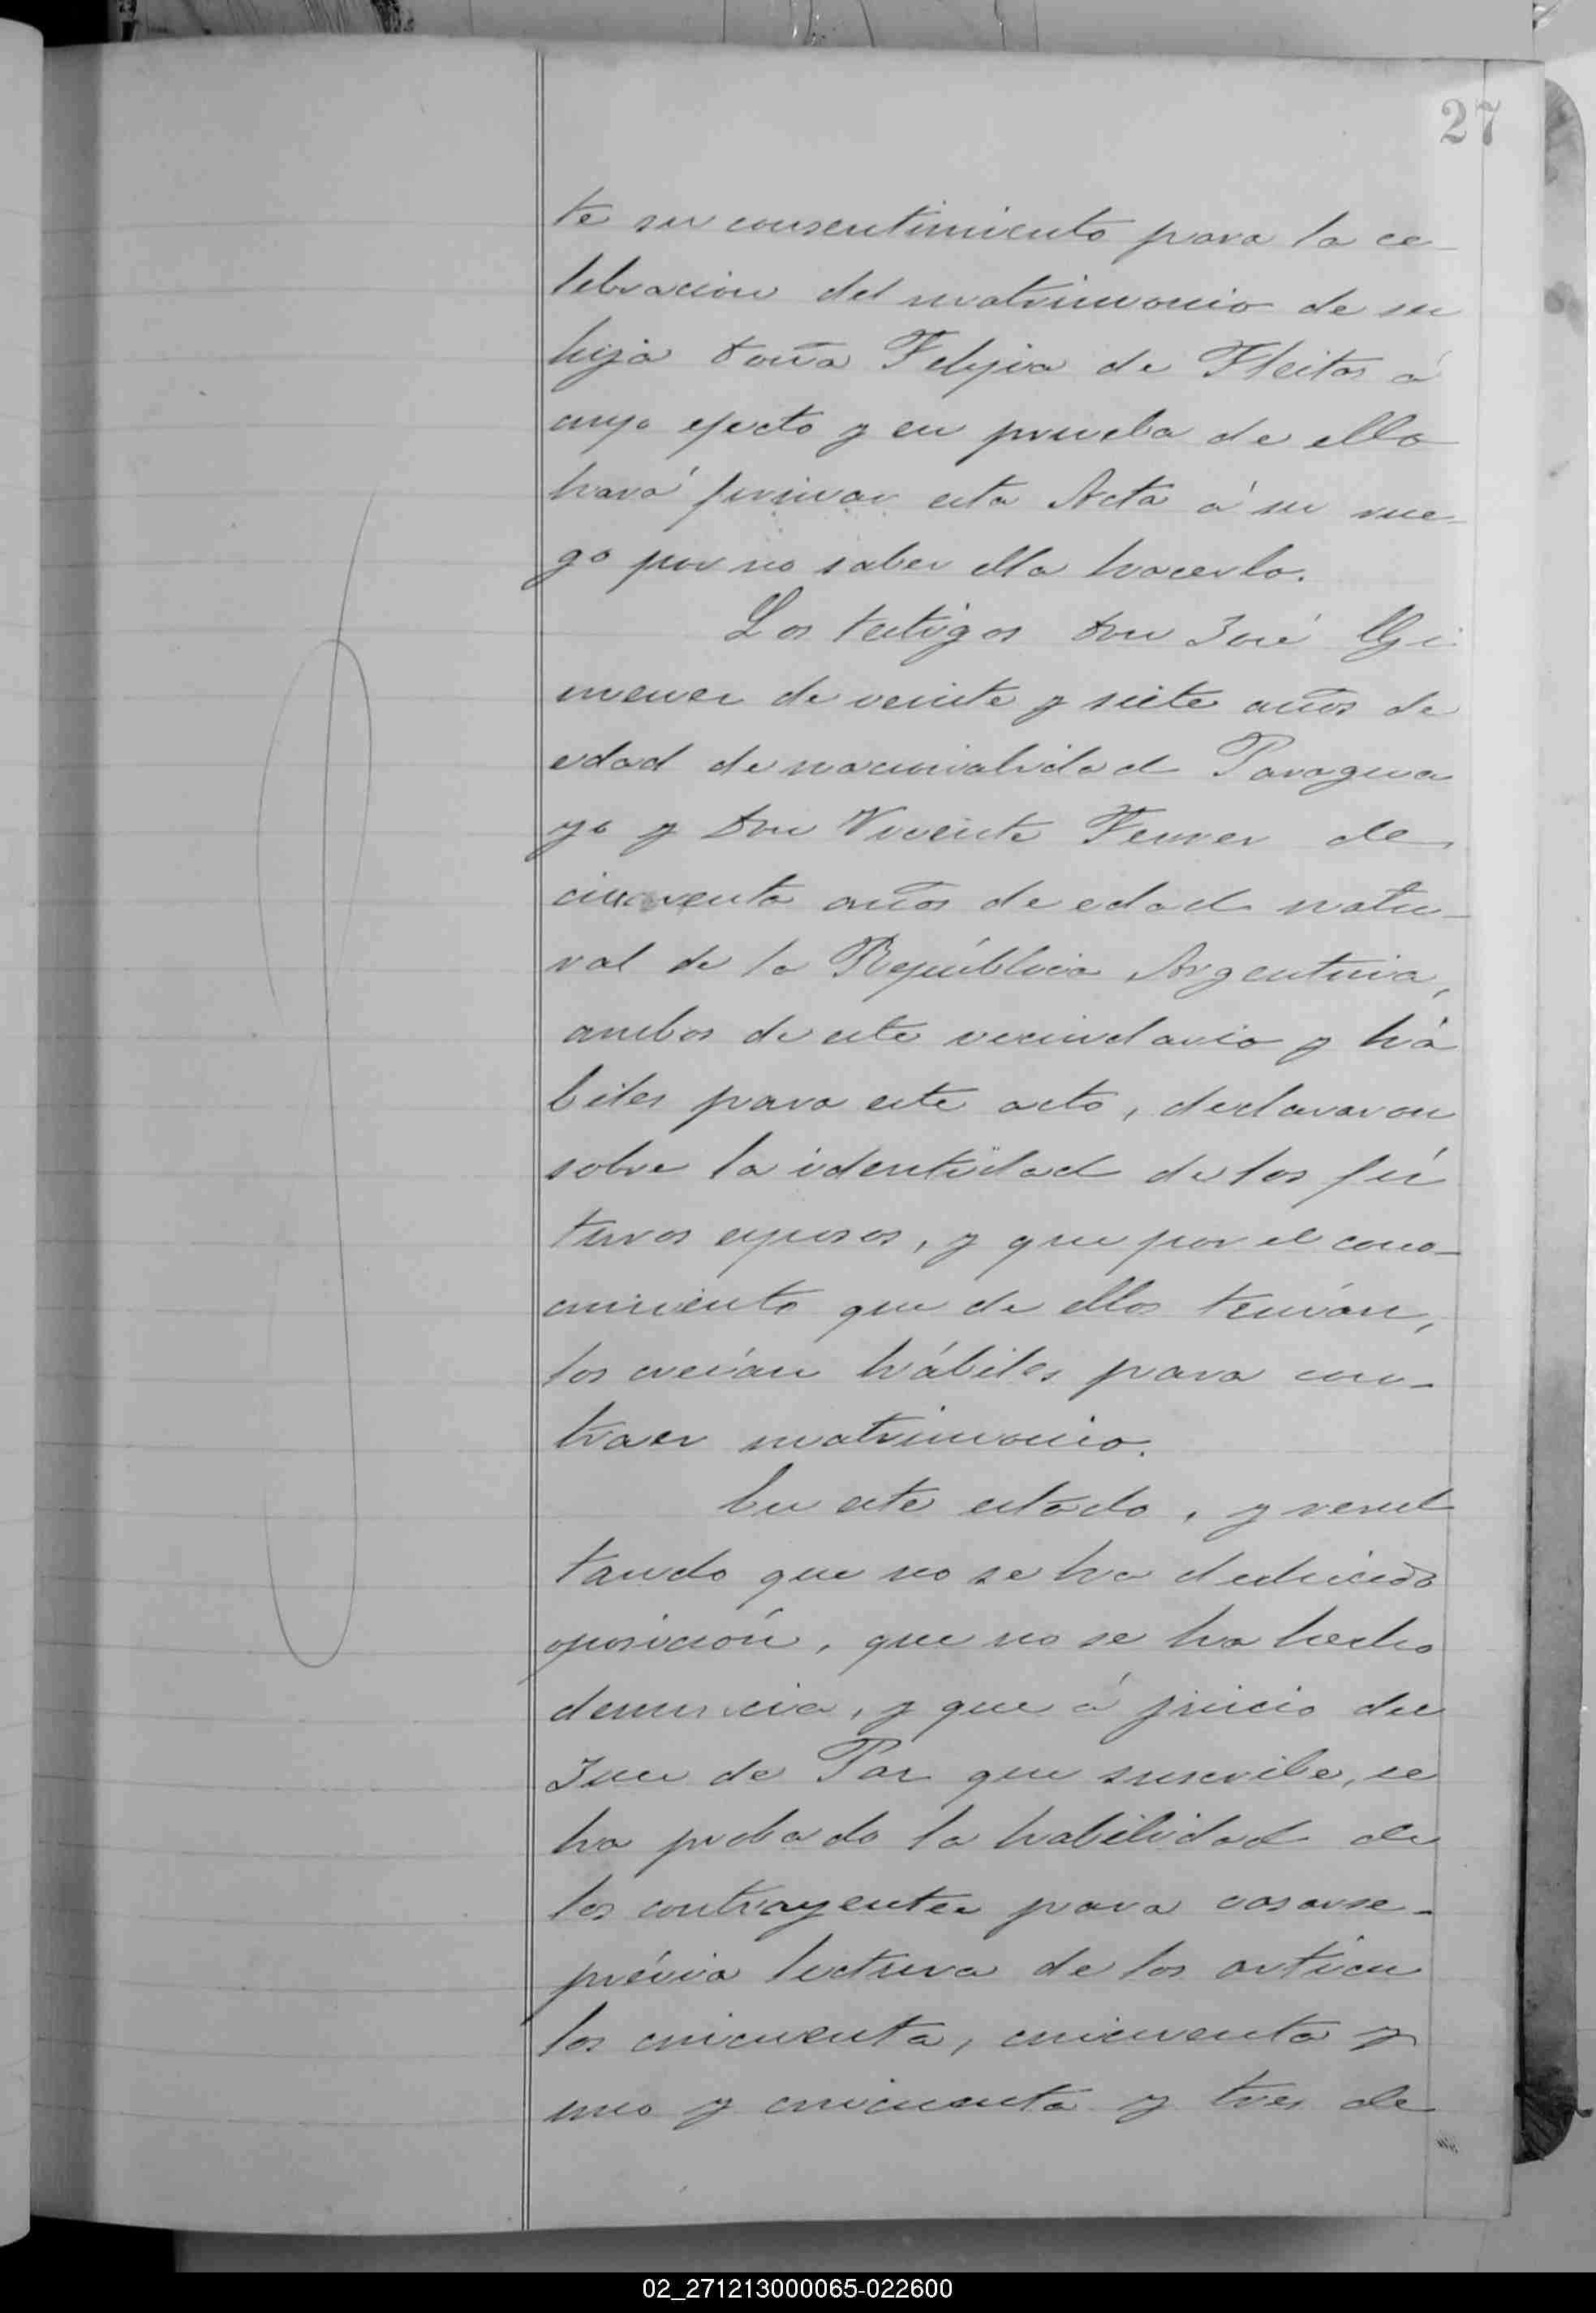 27
te su consentimiento para la ce-
lebracion del matrimonio de su
hija doña Felipa de Fleitas á
cuyo efecto y en prueba de ello
hará firmar esta Acta á su rue-
go por no saber ella hacerlo.
Los testigos Don José Gi
menez de veinte y siete años de
edad de nacionalidad Paragua
yo y Don Vicente Ferrer de
cincuenta años de edad natu-
ral de la República Argentina,
ambos de este vecindario y há
biles para este acto, declararon
sobre la identidad de los fú
turos esposos, y que por el cono-
cimiento que de ellos tenían,
los creían hábiles para con-
traer matrimonio.
En este estado, y resul
tando que no se ha deducido
oposición, que no se ha hecho
denuncia, y que á juicio del
Juez de Paz que suscribe, se
ha probado la habilidad de
los contrayentes para casarse-
prévia lectura de los artícu
los cincuenta, cincuenta y
uno y cincuenta y tres de
02_271213000065-022600